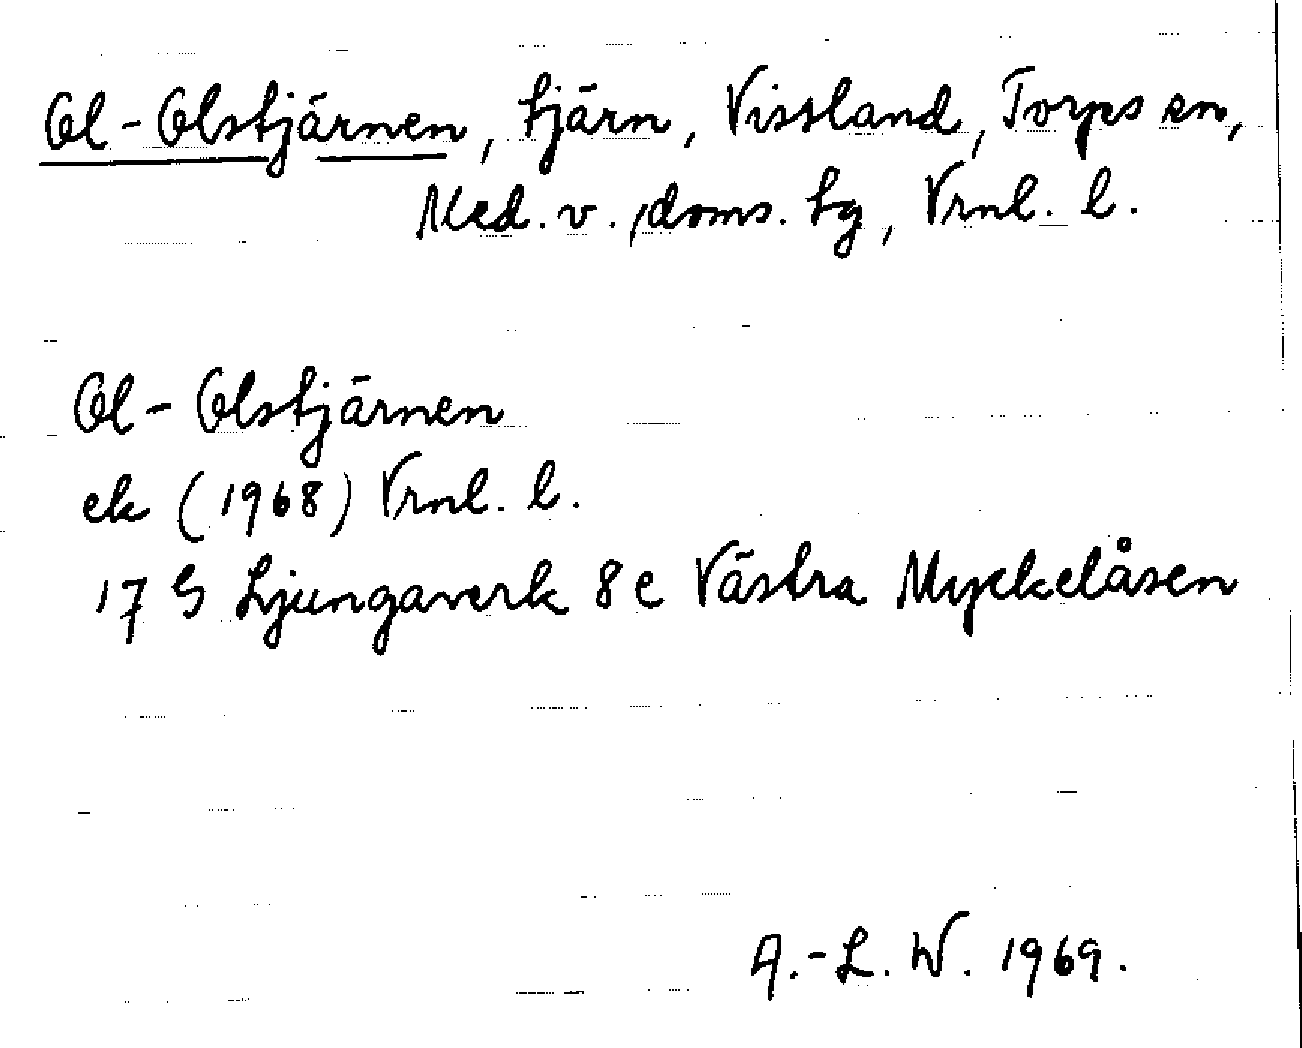 Ol-Olstjärnen, tjärn, Vissland, Torps sn,
Med. v. doms. tg, Vrnl. l.
Ol-Olstjärnen
ek (1968) Vrnl. l.
17 G Ljungaverk 8 e Västra Myckelåsen
A.-L. W. 1969.